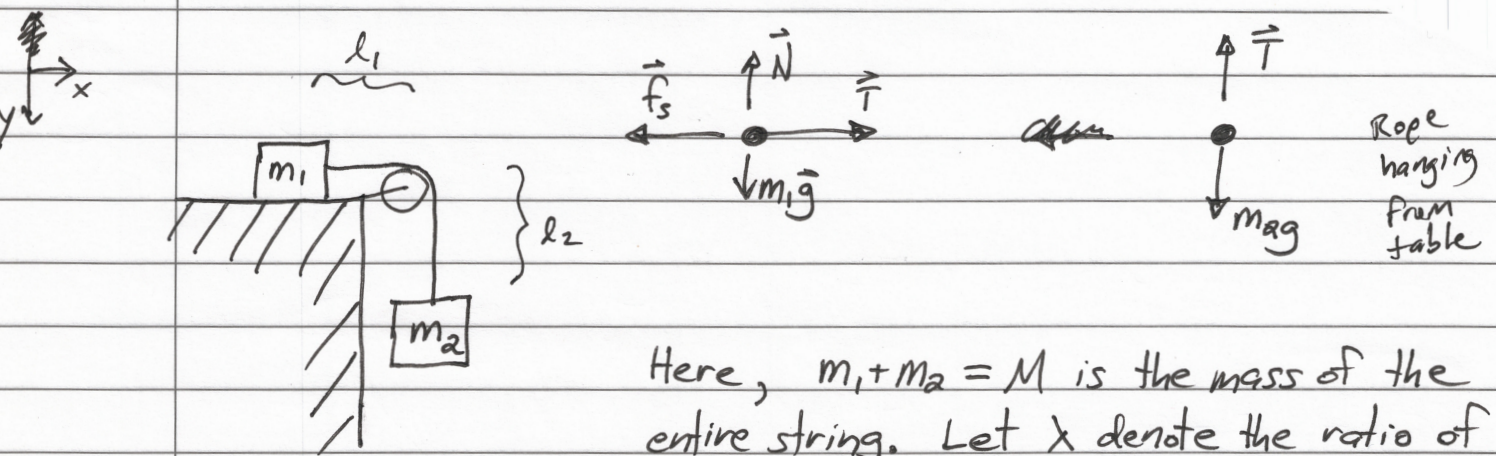 x
y
l₁
m₁
l₂
m₂
f⃗s
N⃗
T⃗
m₁g⃗
T⃗
m₂g
Rope
hanging
from
table
Here, m₁+m₂ = M is the mass of the
entire string. Let λ denote the ratio of